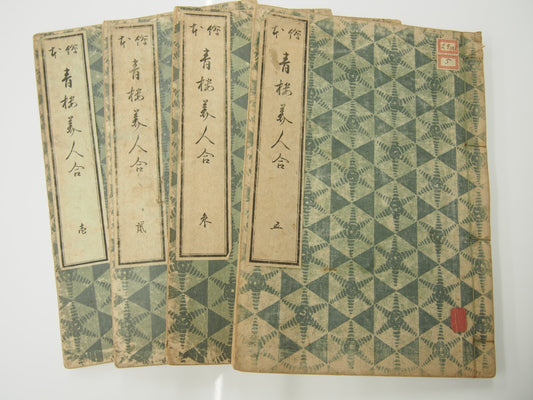 俗本
青楼美人合
壱
俗本
青楼美人合
貮
俗本
青楼美人合
俗本
青楼美人合
五